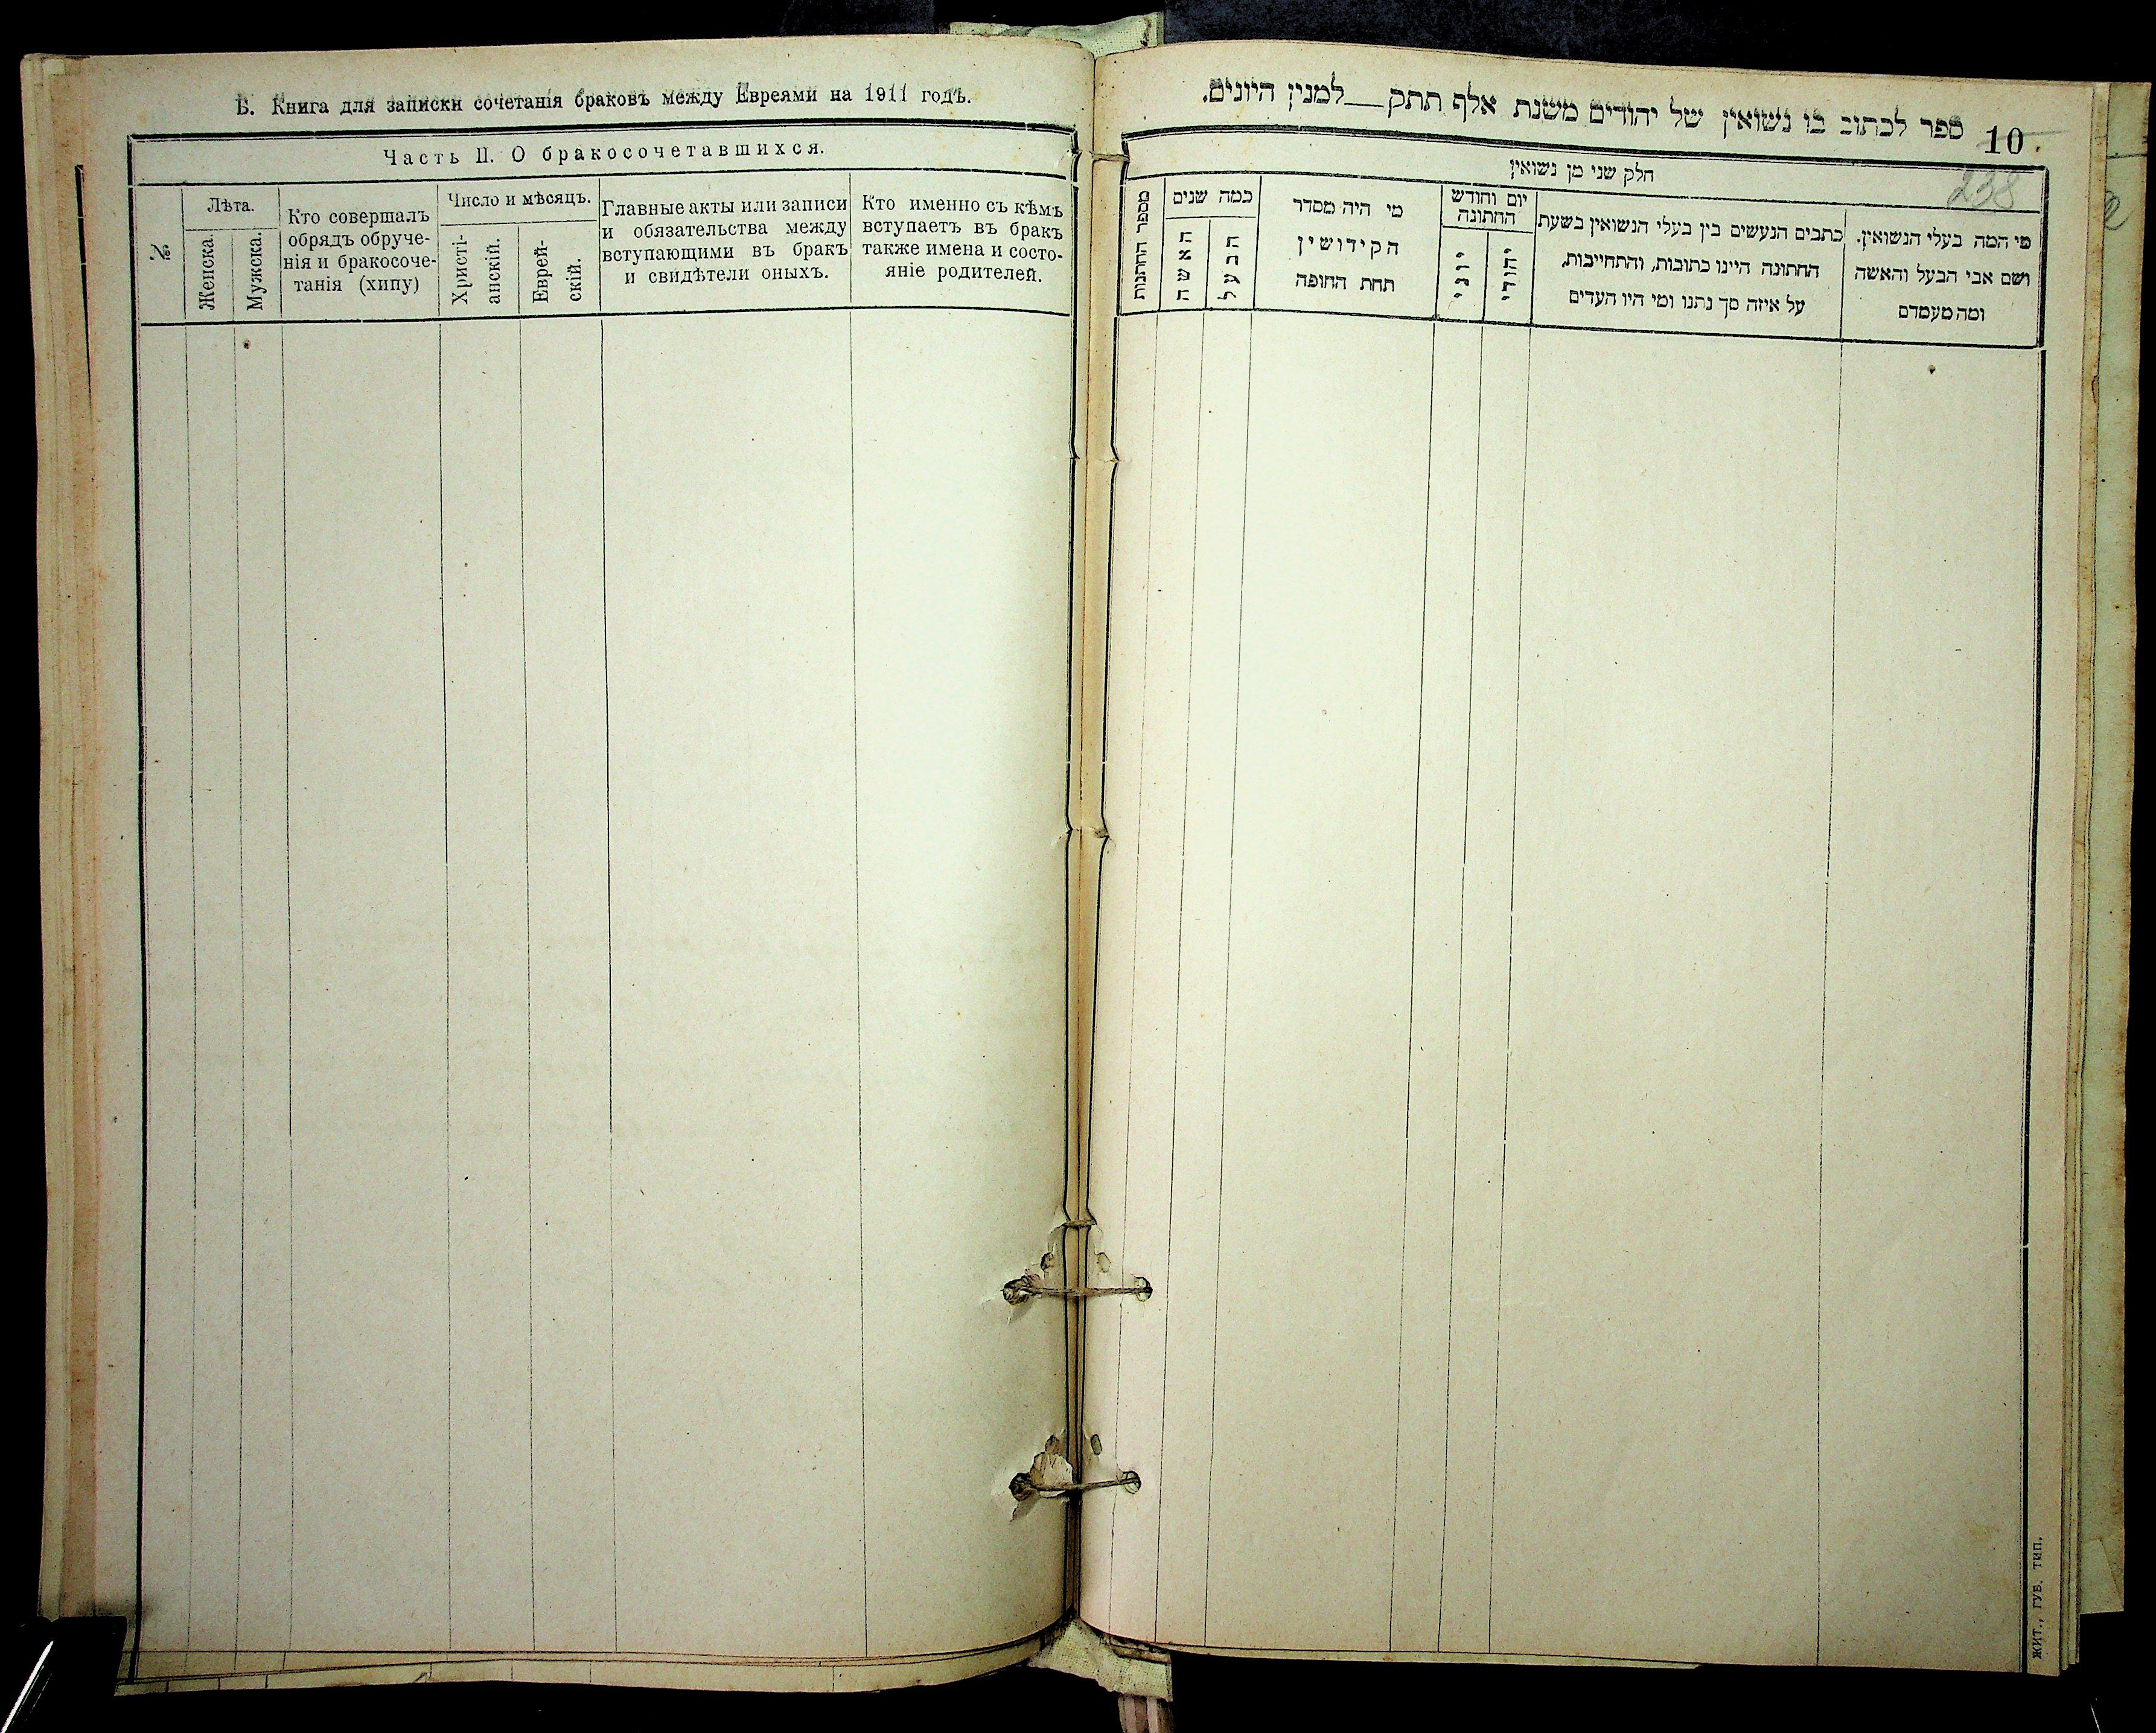 Б. Книга для записки сочетанія браковъ между Евреями на 1911 годъ.
Часть II. О бракосочетавшихся.
№
Лѣта.
Женска.
Мужска.
Кто совершалъ
обрядъ обруче-
нія и бракосоче-
танія (хипу)
Число и мѣсяцъ.
Христі-
анскій.
Еврей-
скій.
Главные акты или записи
и обязательства между
вступающими въ бракъ
и свидѣтели оныхъ.
Кто именно съ кѣмъ
вступаетъ въ бракъ
также имена и состо-
яніе родителей.
ספר לכתוב בו נשואין של יהודים משנת אלף תתק__למנין היונים.
10
238
חלק שני מן נשואין
מי המה בעלי הנשואין.
ושם אבי הבעל והאשה
ומה מעמדם
כתבים הנעשים בין בעלי הנשואין בשעת
החתונה היינו כתובות, והתחייבות,
על איזה סך נתנו ומי היו העדים
יום וחודש
החתונה
יהודי
יוני
מי היה מסדר
הקידושין
תחת החופה
כמה שנים
הבעל
האשה
מספר החתונות
ЖИТ., ГУБ. ТИП.